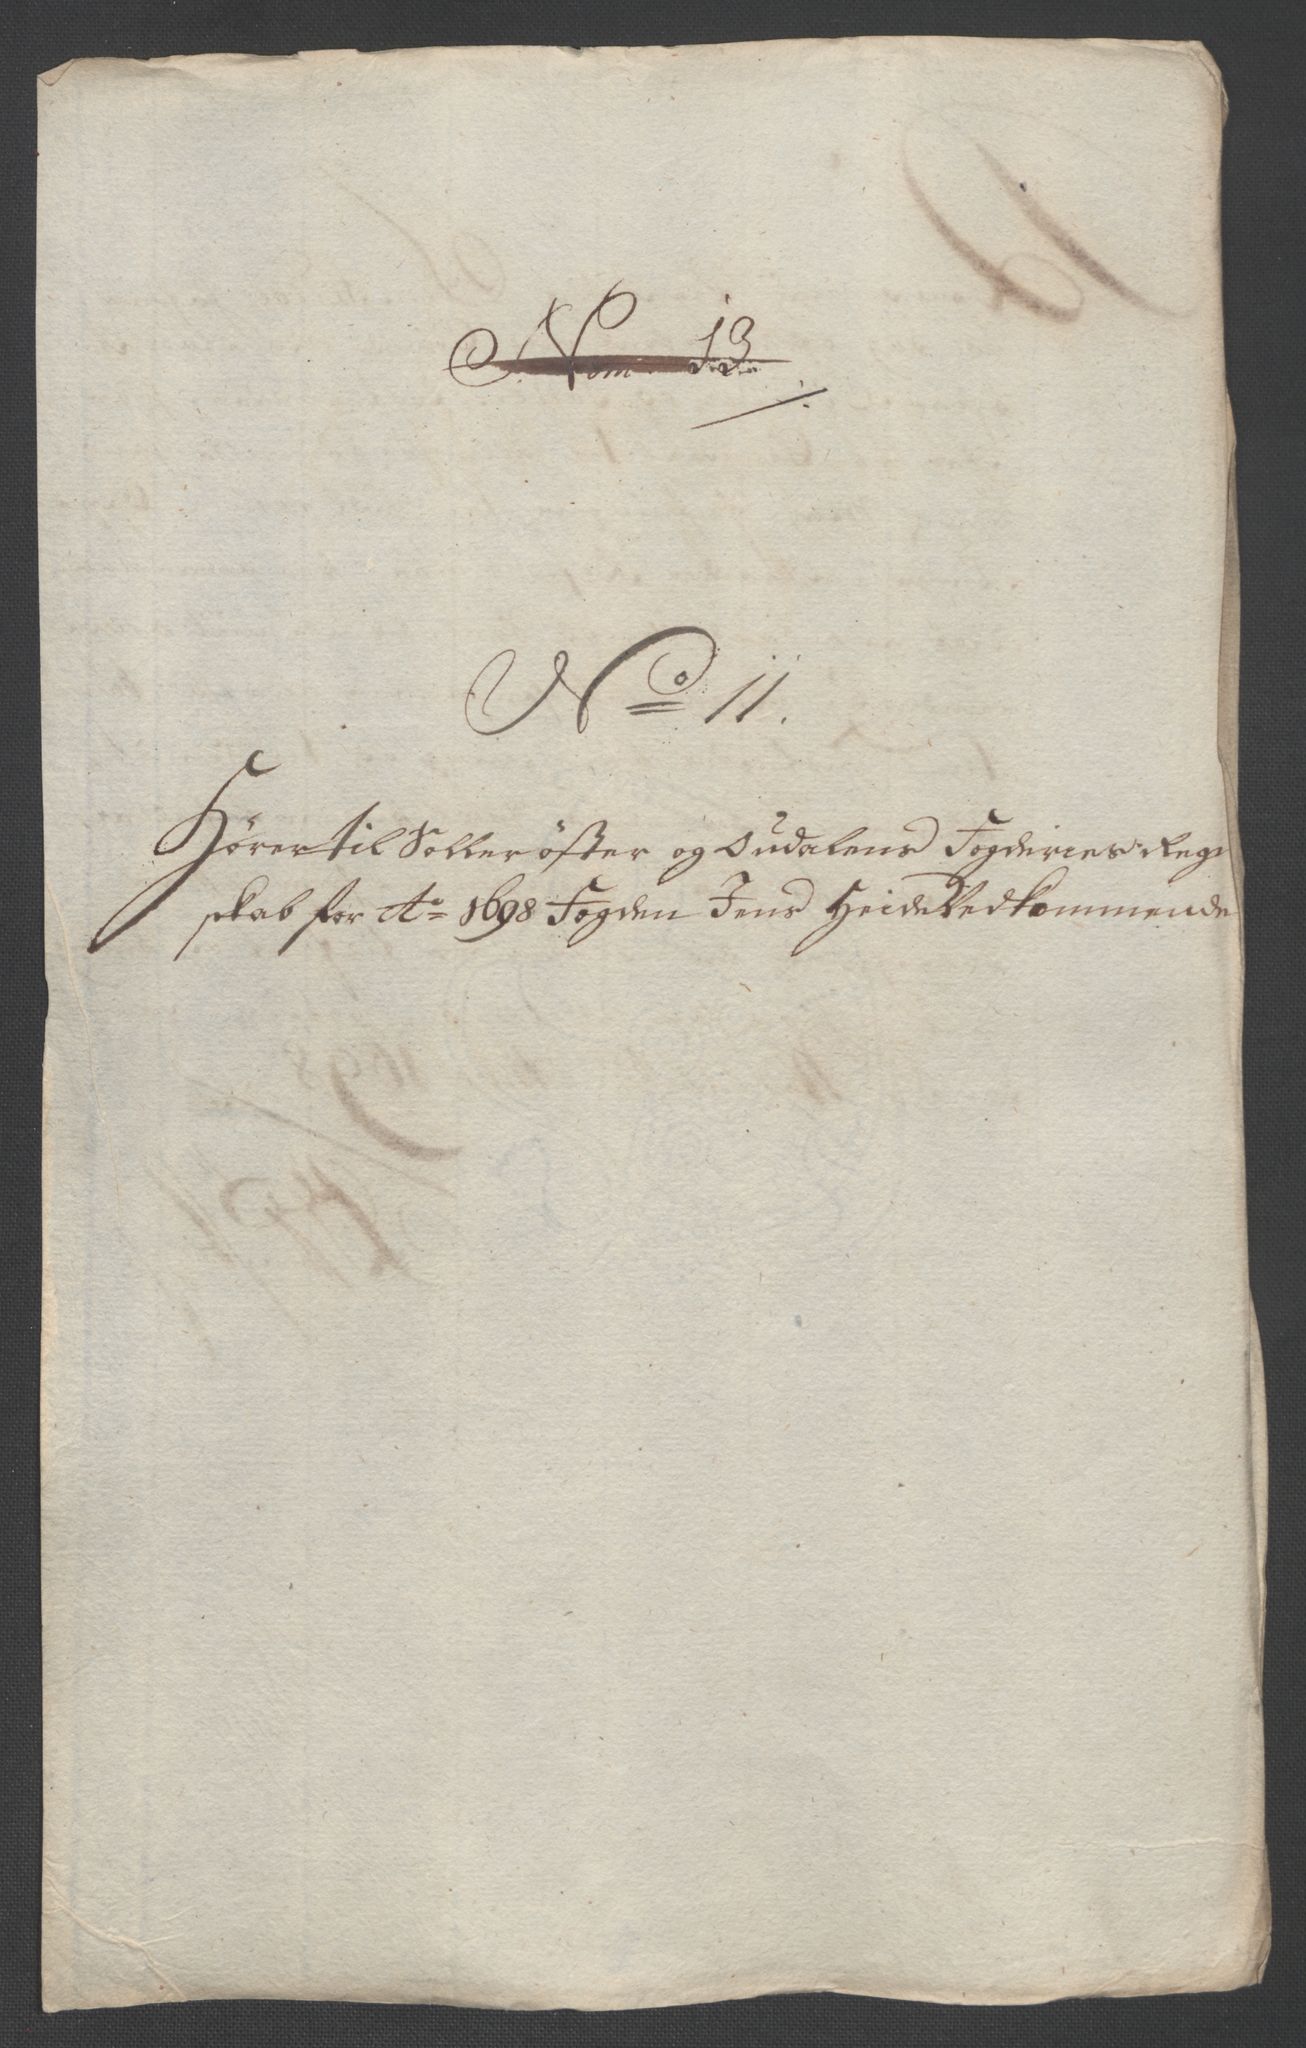 Nom 13
No 11.
Hører til Soller öster og Oudalens Fogderies Regn
skab for Ao 1698 Fogden Jens Heide Vedkommende